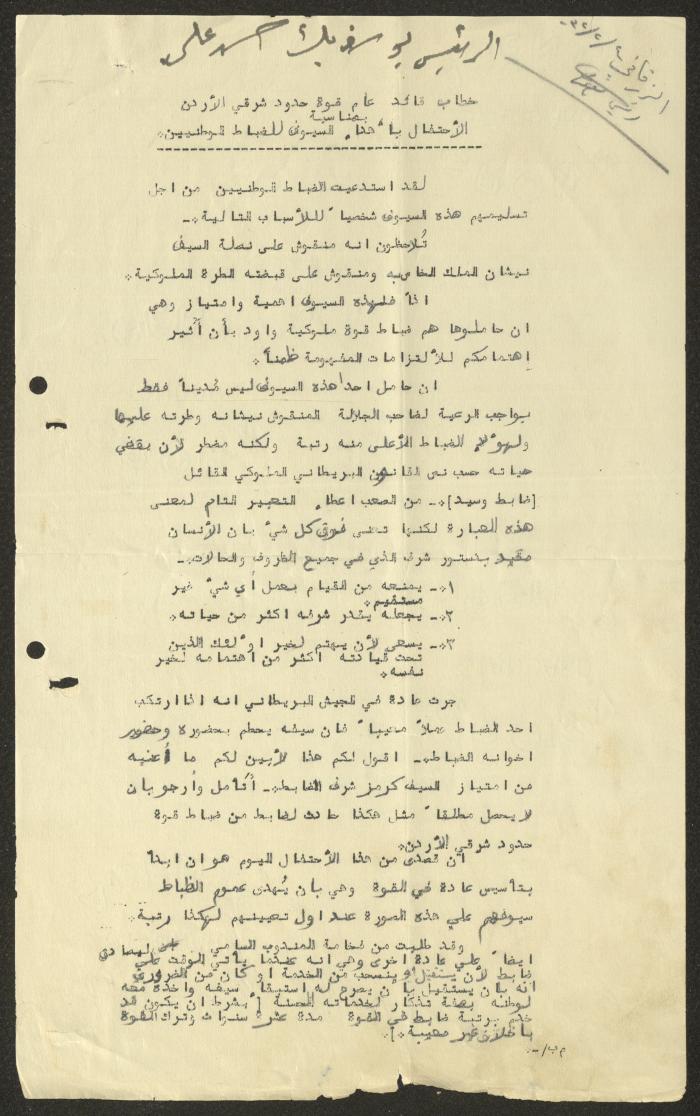 الرئيس يوسف بك حسن علي
الزرقا في ٢/٢/٣٢
خطاب قائد عام قوة حدود شرقي الأردن
بمناسبة
الأحتفال بأهداء السيوف للضباط الوطنيين*
لقد استدعيت الضباط الوطنيين من اجل
تسليمهم هذه السيوف شخصياً للأسباب التالية*-
تُلاحظون انه منقوش على نصلة السيف
نيشان الملك الخاص به ومنقوش على قبضته الطرة الملوكية*
اذاً فلهذه السيوف اهمية وامتياز وهي
ان حاملوها هم ضباط قوة ملوكية واود بأن أثير
إهتمامكم للألتزامات المفهومة ظمناً*
ان حامل احد هذه السيوف ليس مُديناً فقط
بواجب الرعية لصاحب الجلالة المنقوش نيشانه وطرته عليها
ولهؤلاء الضباط الأعلى منه رتبة ولكنه مضطر لأن يقضي
حياته حسب نص القانون البريطاني الملوكي القائل
[ضابط وسيد]*- من الصعب اعطاء التعبير التام لمعنى
هذه العبارة لكنها تعني فوق كل شيء بان الأنسان
مقيد بدستور شرف الذي في جميع الظروف والحالات*-
١*- يمنعه من القيام بعمل أي شيء غير
مستقيم*
٢*- يجعله يقدر شرفه اكثر من حياته*
٣*- يسعى لأن يهتم لخير اولٰئك الذين
تحت قيادته اكثر من اهتمامه لخير
نفسه*
جرت عادة في الجيش البريطاني انه اذا ارتكب
احد الضباط عملاً معيباً فان سيفه يحطم بحضوره وحضور
اخوانه الضباط*- اقول لكم هذا لأبين لكم ما أعنيه
من امتياز السيف كرمز شرف الضابط*- أتأمل وأرجو بان
لا يحصل مطلقاً مثل هكذا حادث لضابط من ضباط قوة
حدود شرقي الأردن*
ان قصدي من هذا الأحتفال اليوم هو ان ابدأ
بتأسيس عادة في القوة وهي بان يُهدى عموم الظباط
سيوفهم علي هذه الصورة عند اول تعيينهم لهكذا رتبة*
وقد طلبت من فخامة المندوب السامي ليصادق
ايضاً علي عادة اخرى وهي انه عندما يأتي الوقت علي
ضابط لأن يستقيل وينسحب من الخدمة او كان من الضروري
انه بان يستقيل بأن يصرح له استبقاء سيفه واخذه معه
لوطنه بصفة تذكار لخدماته الحسنة [بشرط ان يكون قد
خدم برتبة ضابط في القوة مدة عشرة سنوات وترك القوة
بأخلاق غير معيبة*]
م ب/-*